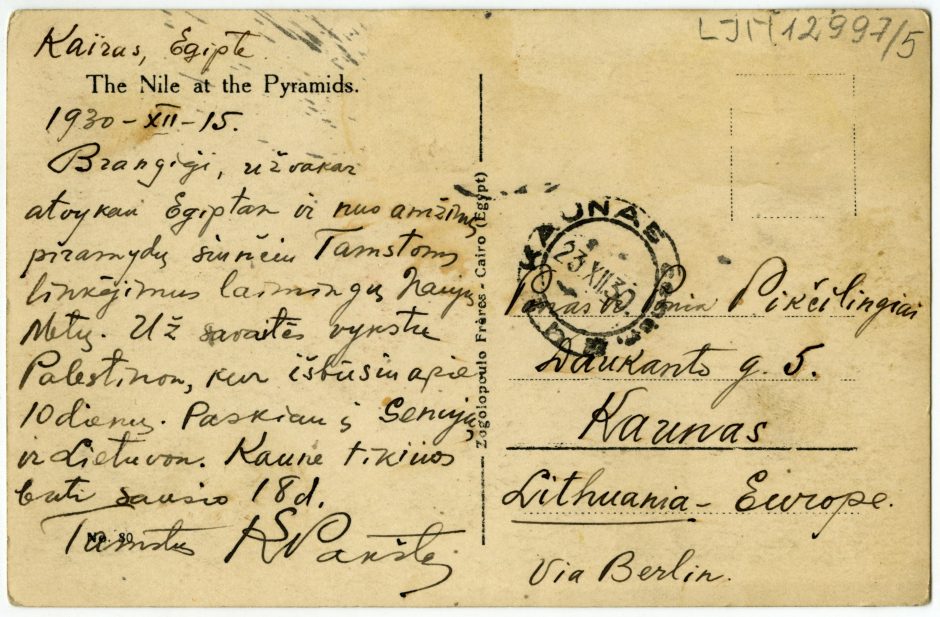 LJM 12997/5
Kairas, Egipte
The Nile at the Pyramids.
1930-XII-15.
Brangieji, užvakar
atvykau Egiptan ir nuo amžinų
piramydų siunčiu Tamstoms
linkėjimus laimingų Naujų
Metų. Už savaitės vykstu
Palestinon, kur išbūsiu apie
10 dienų. Paskiau į
ir Lietuvon. Kaune tikiuos
būti sausio 18 d.
Tamstų K Pakštas
No. 80
Zogolopoulo Frères - Cairo (Egypt)
KAUNAS
23 XII 30
Ponas ir Ponia Pikčilingiai
Daukanto g. 5.
Kaunas
Lithuania - Europe.
Via Berlin.